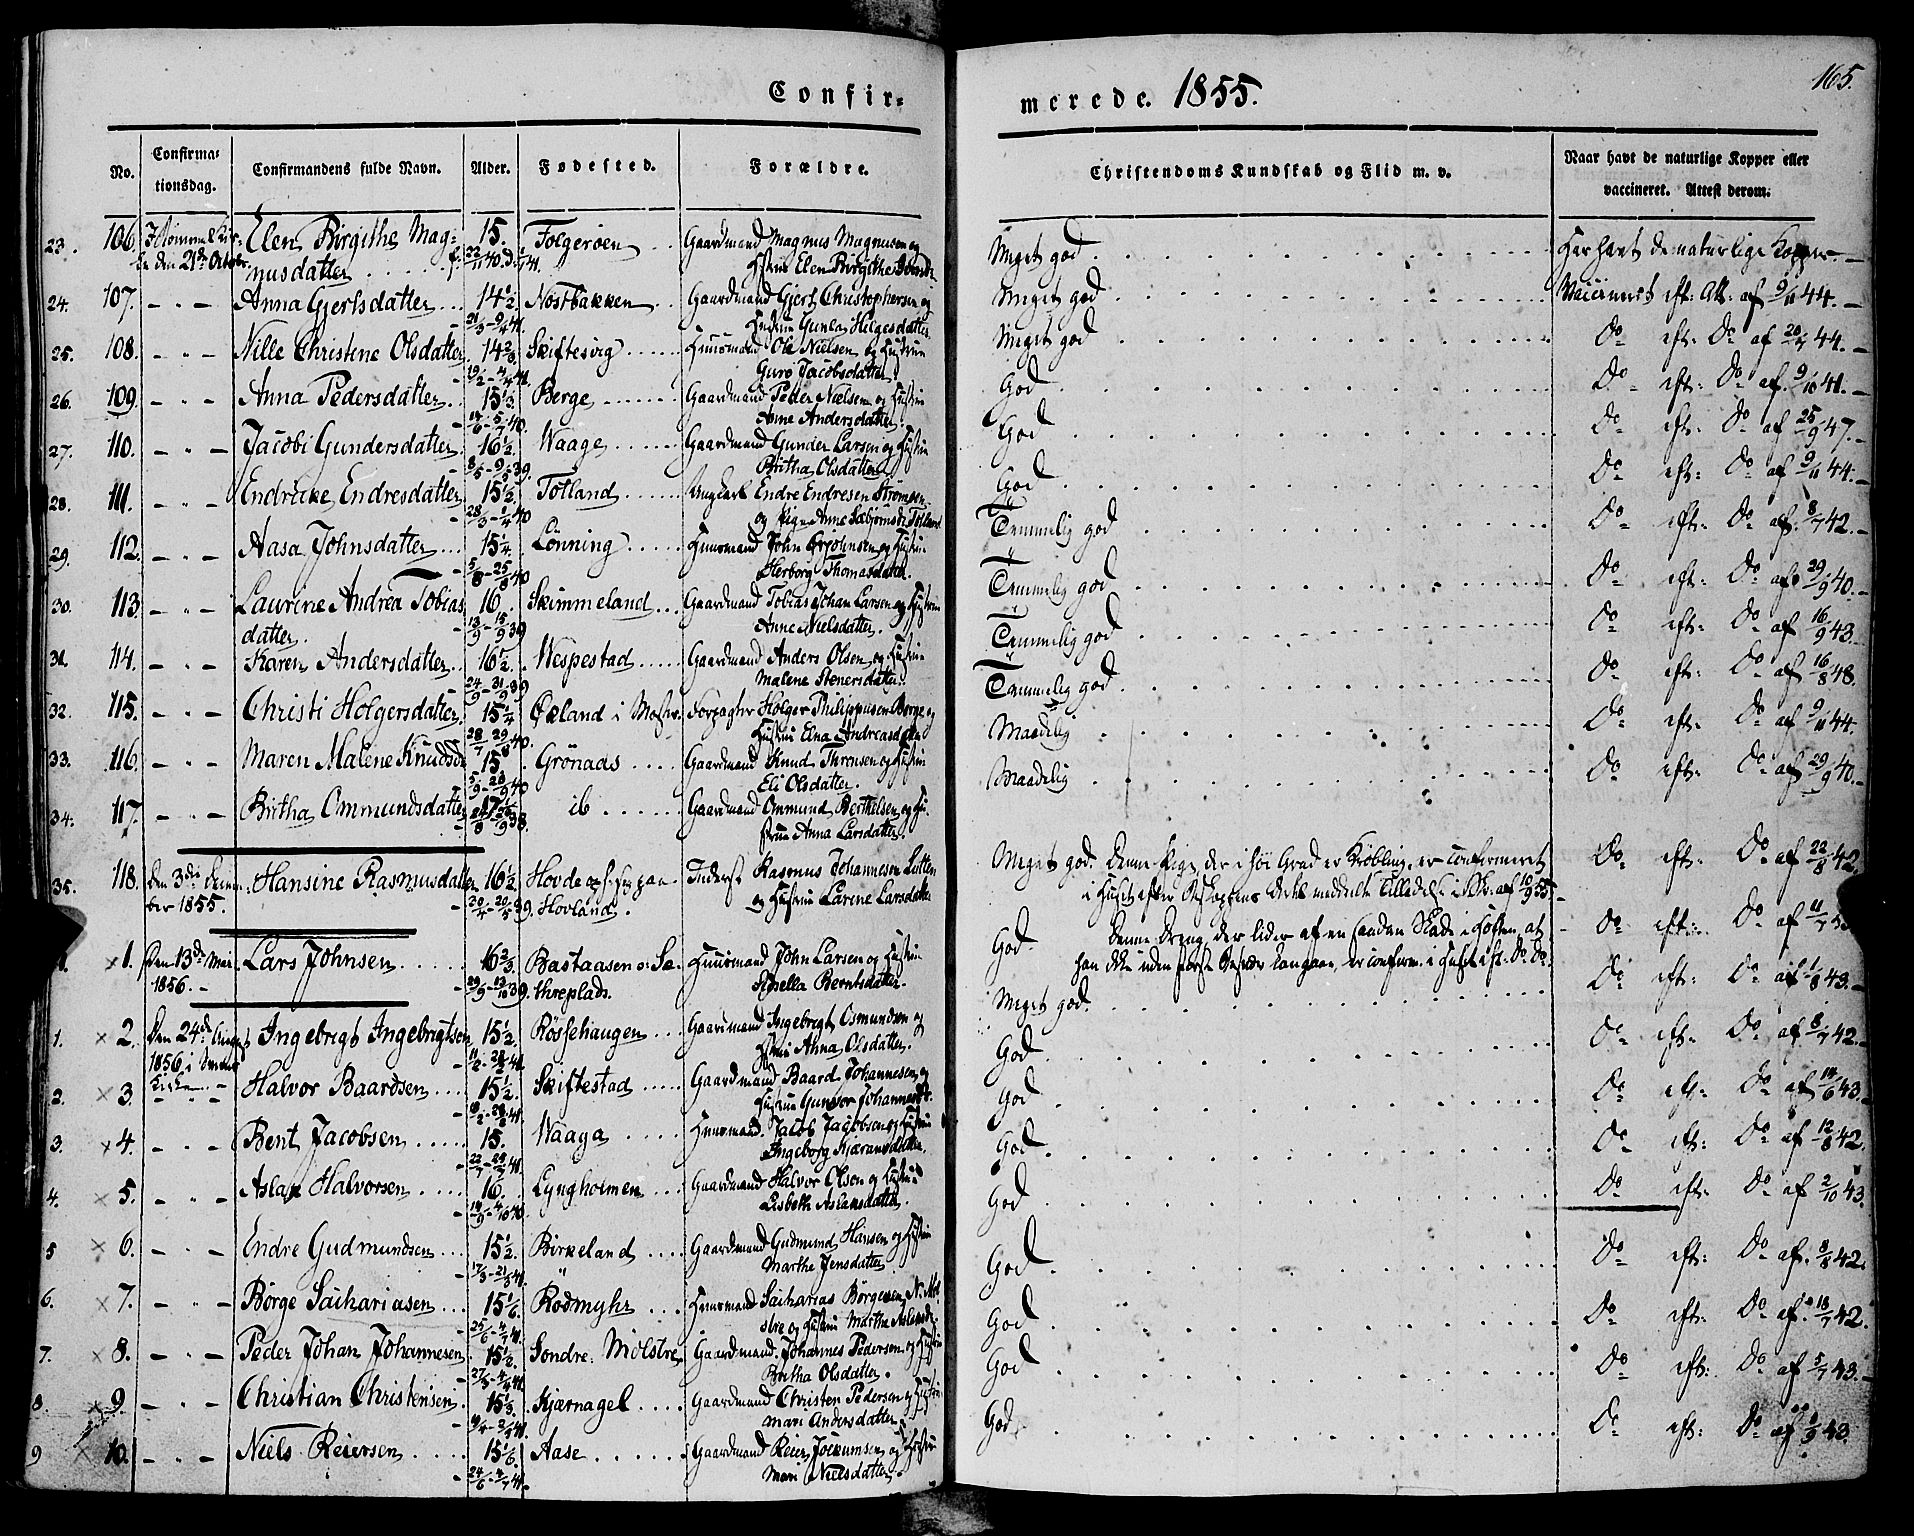 Confir-
merede. 1855.
165.
No. Confirmationsdag. Confirmandens fulde Navn. Alder. Fødested. Forældre.
Christendoms Kundskab og Flid m. v. Naar havt de naturlige Kopper eller vaccineret. Attest derom.
23. 106. Elen Birgithe Mag- 15. Folgerøen Gaardmand Magnus Magnusen og
den 21de October nusdatter Elen Birgithe
Meget god Har havt de naturlige Kopper
24. 107. Anna Gjertsdatter 14 1/2 Nøstbakken Gaardmand Gjert Christophersen og
Hustrue Gunla Helgesdatter
Meget god eft: Att: af 9/11 44.
25. 108. Nille Christine Olsdatter 14 2/3 Skiftesvig Huusmand Ole Nielsen og Hustrue
Guro Jacobsdatter
Meget god Do eft: Do af 20/7 44.
26. 109. Anna Pedersdatter 15 1/3 Berge Gaardmand Peder Nielsen og Hustrue
Anne Andersdatter
God Do eft: Do af 9/10 41.
27. 110. Jacobi Gundersdatter 16 1/2 Waage Gaardmand Gunder Larsen og Hustrue
Britha Olsdatter
God Do eft: Do af 25/9 47.
28. 111. Endrikke Endresdatter 15 1/2 Totland Ungkarl Endre Endresen
og Pige Anne
God Do eft: Do af 9/11 44.
29. 112. Aasa Johnsdatter 15 1/4 Lønning Huusmand John og Hustrue
Herborg Thomasdatter
Temmelig god Do eft: Do af 8/7 42.
30. 113. Laurine Andrea Tobias 16. Skimmeland Gaardmand Tobias Johan Larsen og Hustrue
datter. Anne Nielsdatter.
Temmelig god Do eft: Do af 29/9 40.
31. 114. Karen Andersdatter 16 1/2 Wespestad Gaardmand Anders Olsen og Hustrue
Malene Stenersdatter
Temmelig god Do eft: Do af 16/9 43.
32. 115. Christi Holgersdatter 15 1/4 Økland i Forpagter Holger Philippusen Berge og
Hustrue Elna
Temmelig god Do eft: Do af 16/8 48.
33. 116. Maren Malene Knudsd. 15 Grønaas Gaardmand Knud og Hustrue
Eli Olsdatter.
Maadelig Do eft: Do af 9/11 44.
34. 117. Britha Ommundsdatter 17 ib Gaardmand Ommund Berthelsen og Hu-
strue Anna Larsdatter
Maadelig Do eft: Do af 29/9 40.
35. 118. Den 3die Decem- Hansine Rasmusdatter 16 1/2 Hovde Inderst Rasmus Johannesen
ber 1855. Hovland. og Hustrue Larine Larsdatter
Meget god. Denne Pige, der i høi Grad er Krøbling, er confirmeret Do eft: Do af 22/8 42.
i Huset efter meddeelte Tilladelse i Skr. af 10/9 55
1. 1. Den 13de Mai Lars Johnsen 16 2/3 Bastaasen Huusmand John Larsen og Hustrue
1856. threplads. Berntsdatter
God. Denne Dreng, der lider af en saadan Skade i Hoften, at Do eft: Do af 11/7
han ikke uden største Besvær kan gaae, er confirm. i Huset eft: Do Do
1. 2. Den 24de August Ingebrigt Ingebrigtsen 15 1/2 Røssehaugen Gaardmand Ingebrigt Osmundsen og
1856 i Hustrue Anna Olsdatter.
Kirke
Meget god. Do eft: Do af 1/8 43.
2. 3. Halvor Baardsen 15 1/2 Skiftestad Gaardmand Baard Johannesen og
Hustrue Gunvor
God Do eft: Do af 8/7 42.
3. 4. Bent Jacobsen 15. Waage Huusmand Jacob Jacobsen og Hustrue
Ingeborg
God Do eft: Do af 14/6 43.
4. 5. Aslak Halvorsen 16. Lyngholmen Gaardmand Halvor Olsen og Hustrue
Lisbeth Aslaksdatter
God Do eft: Do af 12/8 42.
5 6. Endre Gudmundsen 15 1/2 Birkeland Gaardmand Gudmund Hansen og Hustrue
Marthe Jensdatter
God Do eft: Do af 2/10 43.
6. 7. Børge Sachariasen 15 1/6 Rødmyhr Huusmand Sacharias Børgesen
og Hustrue Marthe
God Do eft: Do af 8/8 42.
7. 8. Peder Johan Johannesen 15 1/2 Søndre Mølstre Gaardmand Johannes Pedersen og Hustrue
Britha Olsdatter.
God Do eft: Do af 18/7 42.
8. 9. Christian Christensen 15 1/3 Kjærnagel Gaardmand Christen Pedersen og Hustrue
Mari Andersdatter
God Do eft: Do af 5/7 43.
9 10. Niels Reiersen 15 1/6 Aase Gaardmand Reier Jockumsen og Hustrue
Mari Nielsdatter
God Do eft: Do af 43.